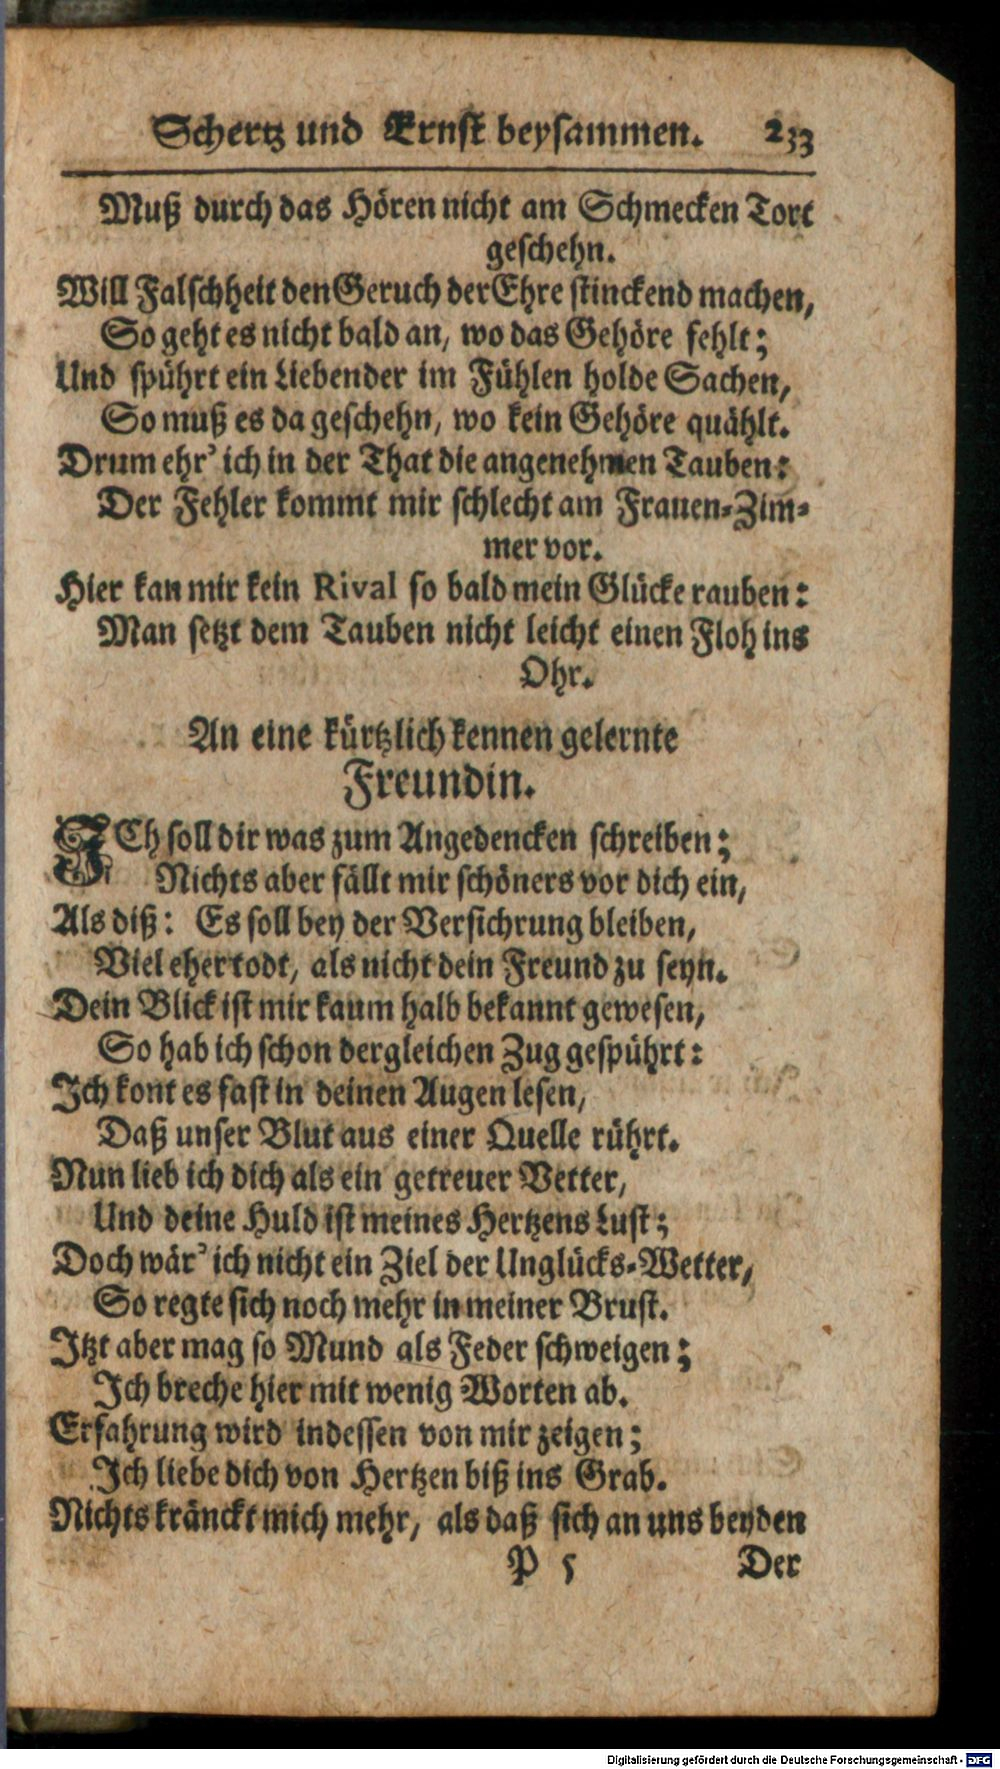 Schertz und Ernst beysammen. 233
Muß durch das Hören nicht am Schmecken Tort
geschehn.
Will Falschheit den Geruch der Ehre stinckend machen,
So geht es nicht bald an, wo das Gehöre fehlt;
Und spührt ein Liebender im Fühlen holde Sachen,
So muß es da geschehn, wo kein Gehöre quählt.
Drum ehr' ich in der That die angenehmen Tauben:
Der Fehler kommt mir schlecht am Frauen-Zim-
mer vor.
Hier kan mir kein Rival so bald mein Glücke rauben:
Man setzt dem Tauben nicht leicht einen Floh ins
Ohr.
An eine kürtzlich kennen gelernte
Freundin.
ICh soll dir was zum Angedencken schreiben;
Nichts aber fällt mir schöners vor dich ein,
Als diß: Es soll bey der Versichrung bleiben,
Viel eher todt, als nicht dein Freund zu seyn.
Dein Blick ist mir kaum halb bekannt gewesen,
So hab ich schon dergleichen Zug gespührt:
Ich kont es fast in deinen Augen lesen,
Daß unser Blut aus einer Quelle rührt.
Nun lieb ich dich als ein getreuer Vetter,
Und deine Huld ist meines Hertzens Lust;
Doch wär' ich nicht ein Ziel der Unglücks-Wetter,
So regte sich noch mehr in meiner Brust.
Itzt aber mag so Mund als Feder schweigen;
Ich breche hier mit wenig Worten ab.
Erfahrung wird indessen von mir zeigen;
Ich liebe dich von Hertzen biß ins Grab.
Nichts kränckt mich mehr, als daß sich an uns beyden
P 5 Der
Digitalisierung gefördert durch die Deutsche Forschungsgemeinschaft - DFG